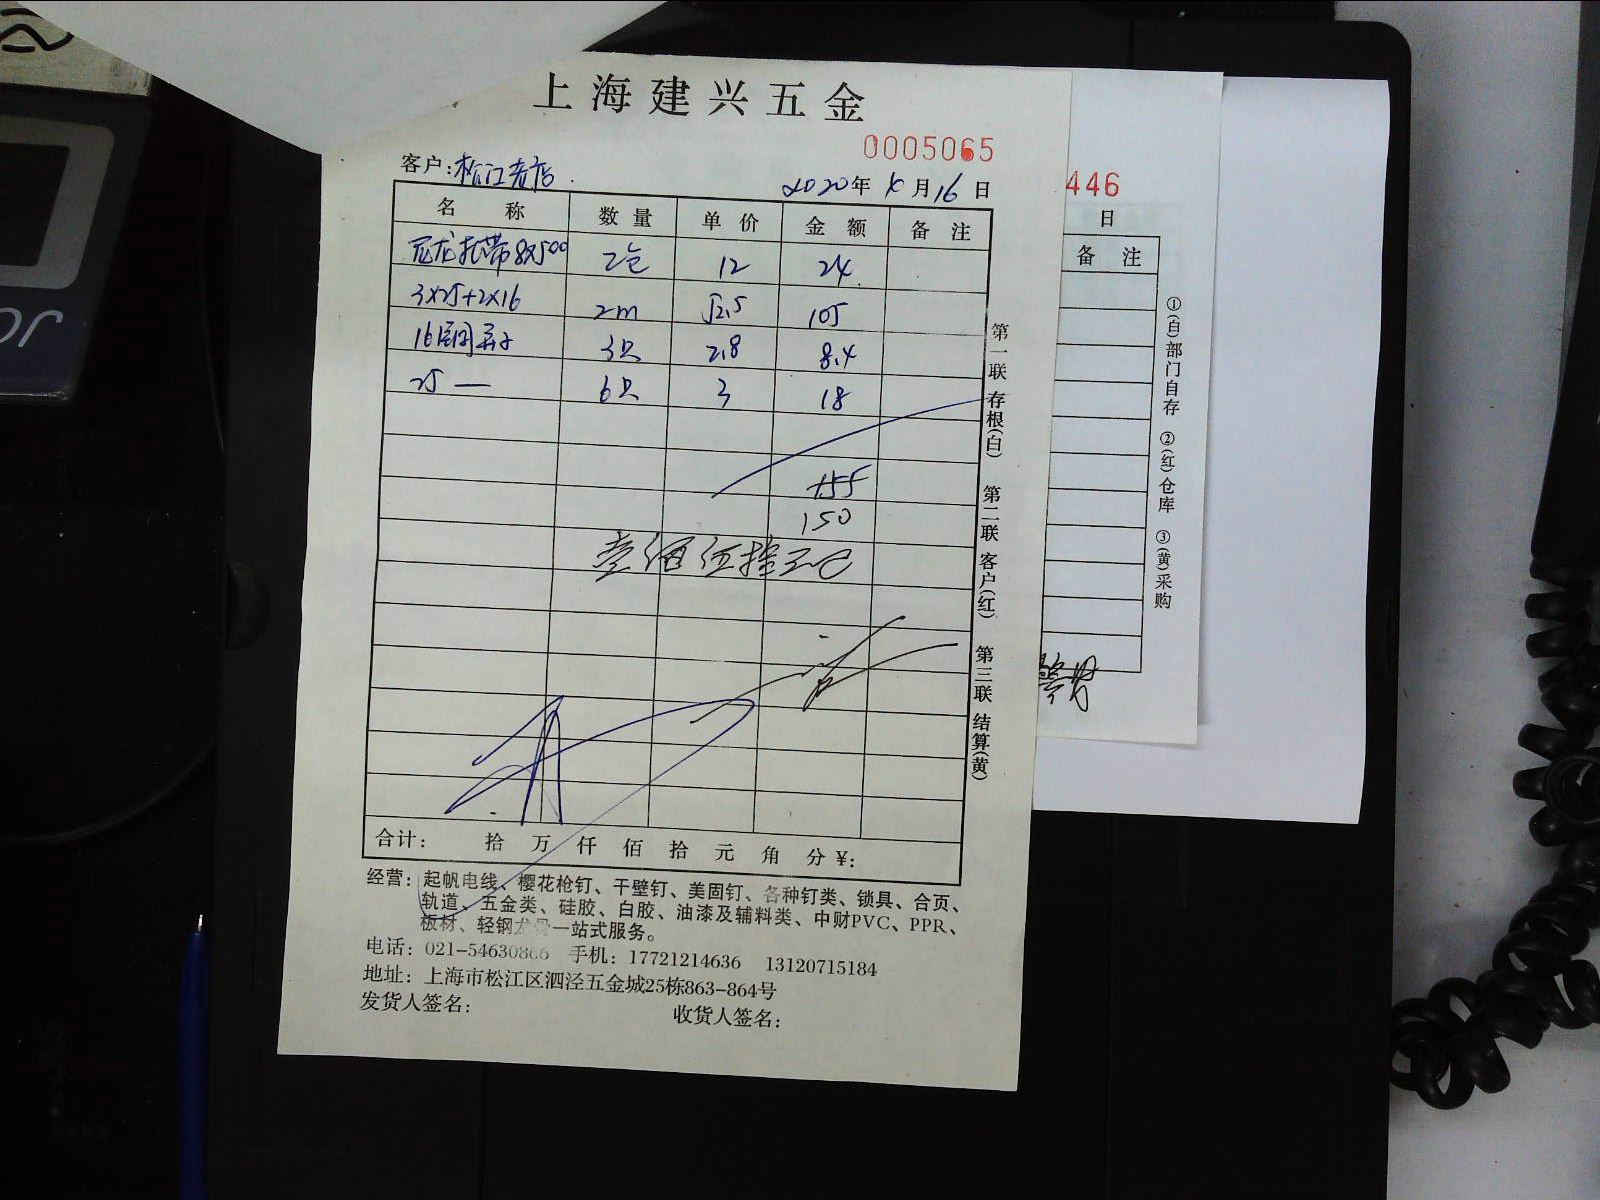 上海建兴五金
0005065
客户:松江老店
2020年 4月16日
名 称 数量 单价 金额 备注
尼龙扎带8X500 2包 12 24
3×25+2×16 2m 52.5 105
16铜鼻子 3只 2.8 8.4
25 — 6只 3 18
155
150
壹佰伍拾元
合计: 拾 万 仟 佰 拾 元 角 分 ¥:
经营: 起帆电线、樱花枪钉、干壁钉、美固钉、各种钉类、锁具、合页、
轨道、五金类、硅胶、白胶、油漆及辅料类、中财PVC、PPR、
板材、轻钢龙骨一站式服务。
电话: 021-54630866 手机: 17721214636 13120715184
地址: 上海市松江区泗泾五金城25栋863-864号
发货人签名: 收货人签名:
第一联 存根(白) 第二联 客户(红) 第三联 结算(黄)
446
日
备 注
①(白)部门自存 ②(红)仓库 ③(黄)采购